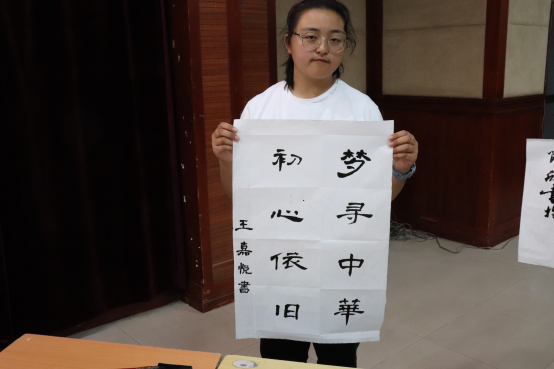 梦寻中華
初心依旧
王嘉悦書